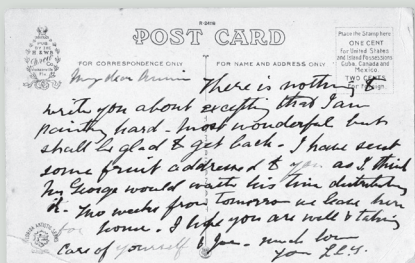 R-24119
POST CARD
Place the Stamp here
ONE CENT
for United States
and Island Possessions
Cuba, Canada and
Mexico.
TWO CENTS
for Foreign.
FOR CORRESPONDENCE ONLY
FOR NAME AND ADDRESS ONLY
My dear Annie
There is nothing to
write you about excepting that I am
painting hard - most wonderful but
shall be glad to get back - I have sent
some fruit addressed to you as I think
George would waste his time distributing
it - Two weeks from tomorrow we leave here
for home. I hope you are well & taking
care of yourself & Joe - much love